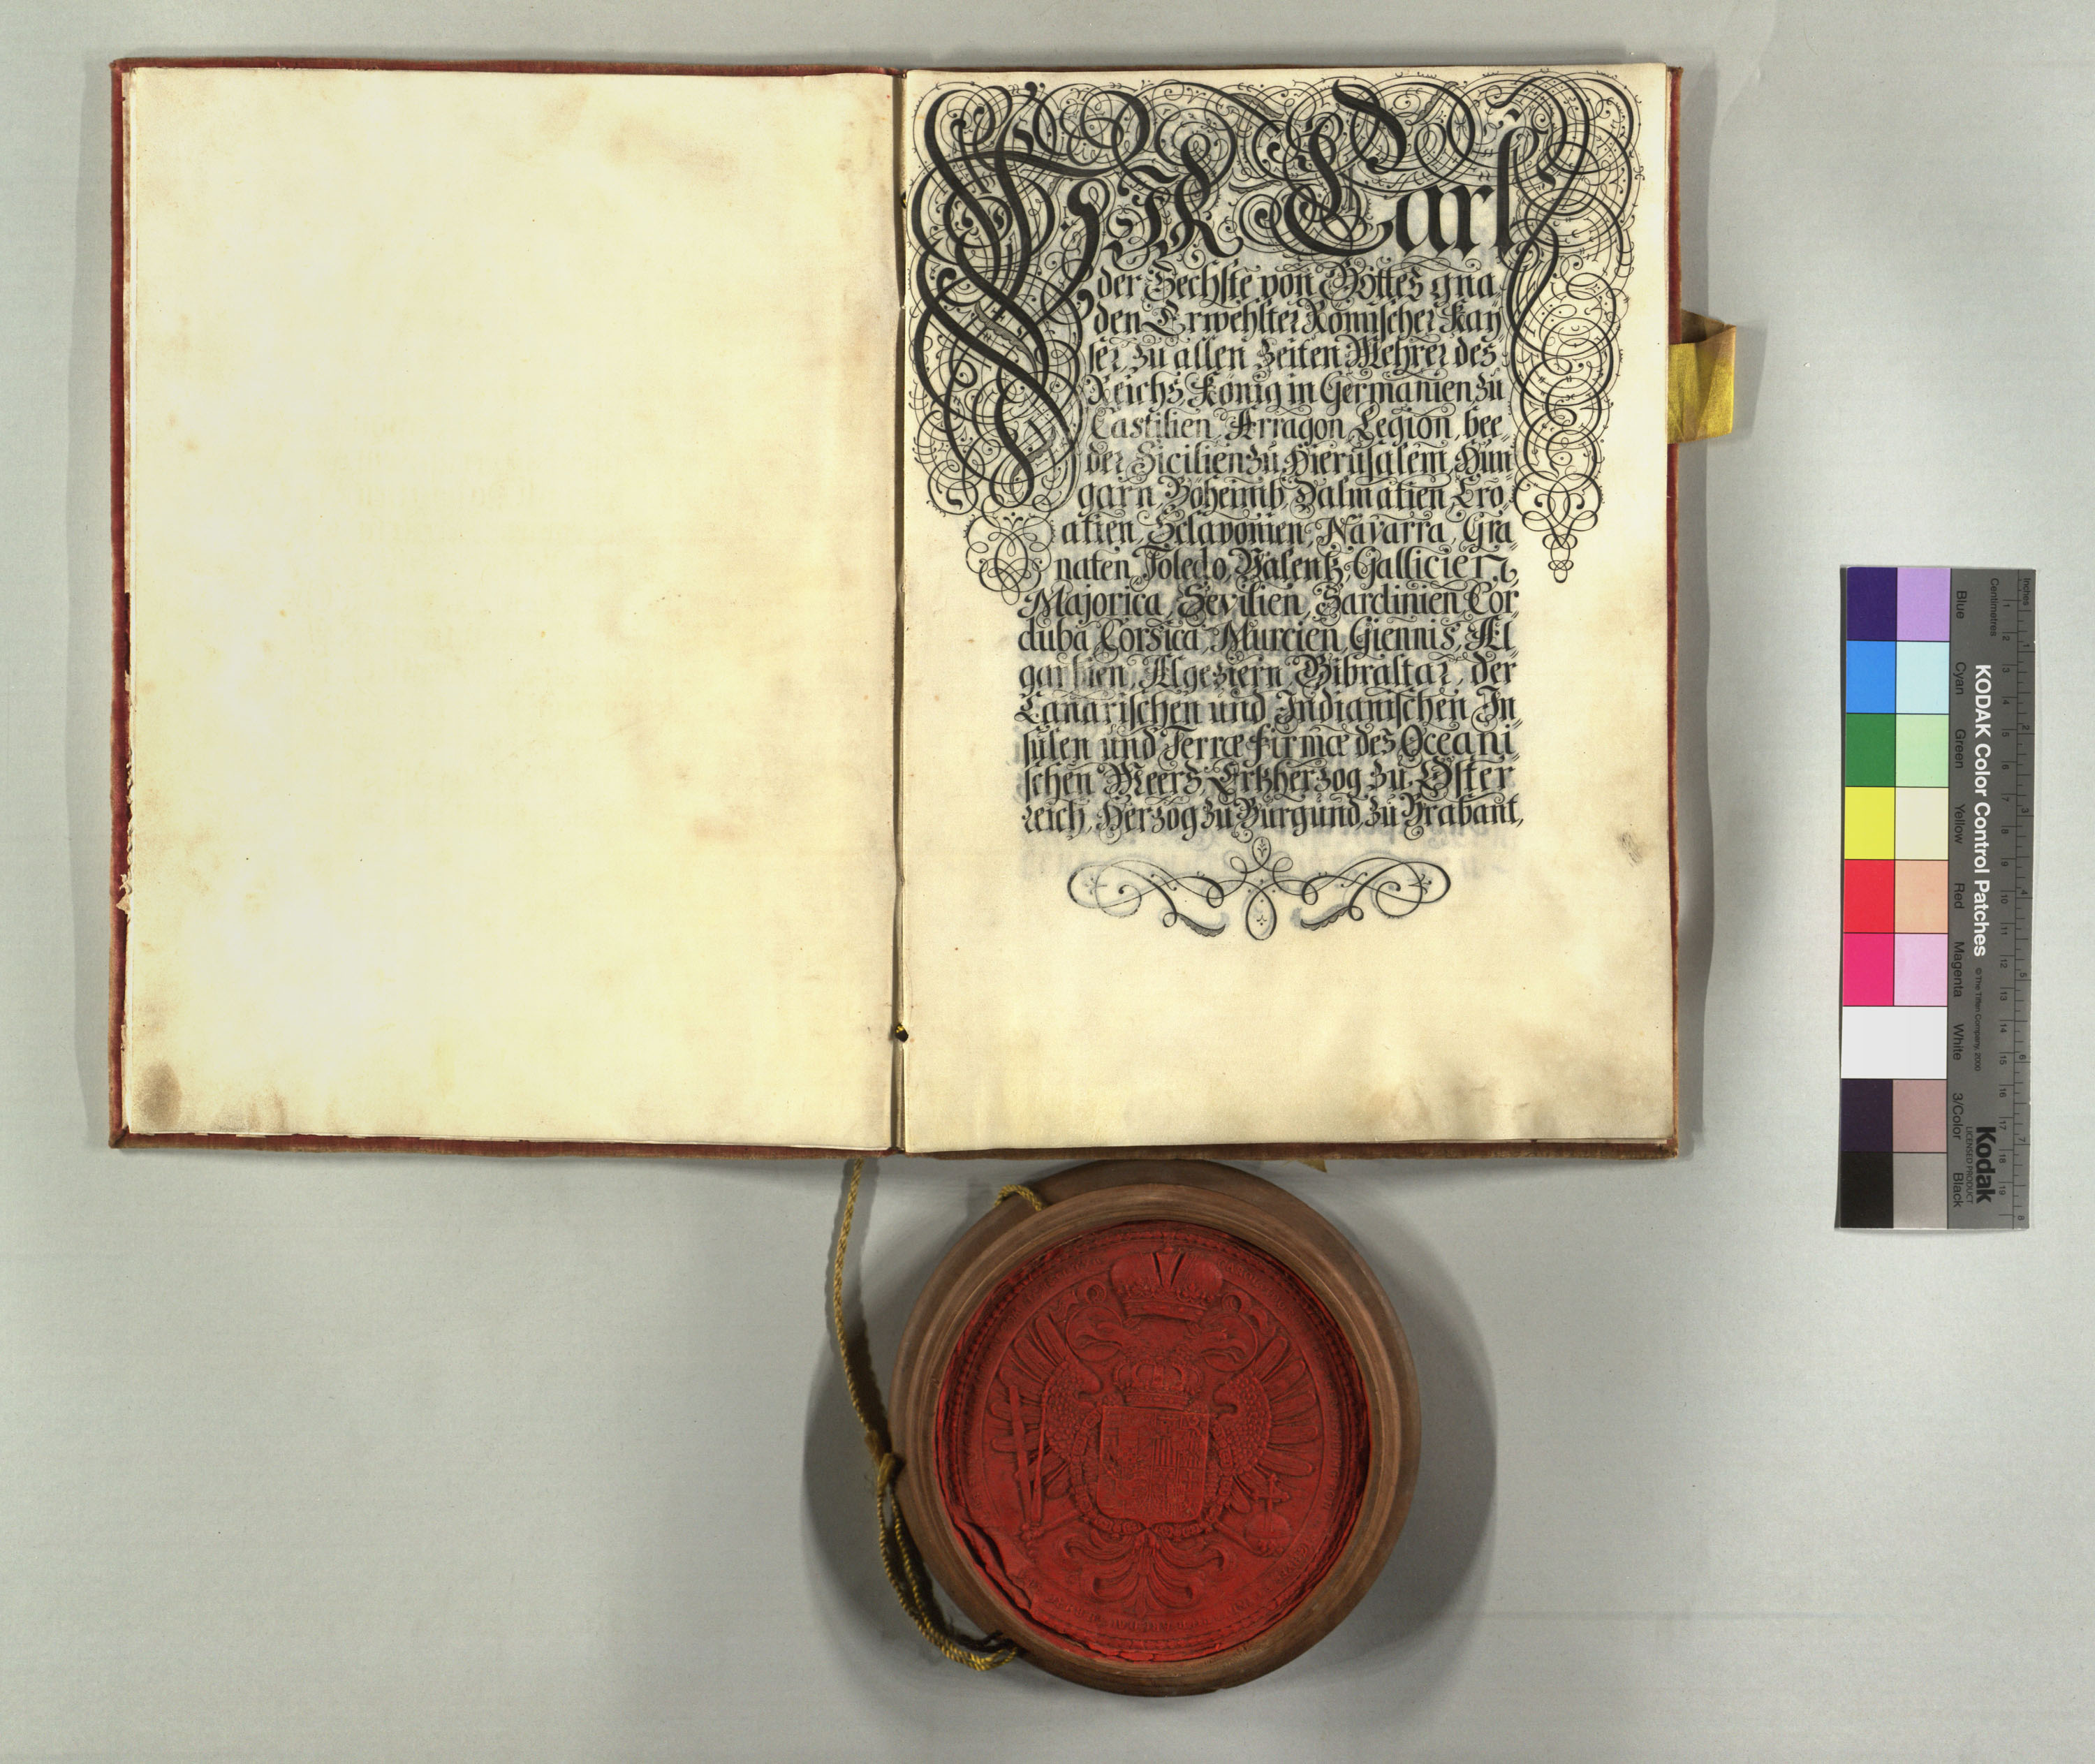 WIR Carl
der Sechste von Gottes gna„
den Erwehlter Römischer Kay„
ser zu allen Zeiten Mehrer des
Reichs König in Germanien zu
Castilien, Arragon, Legion, bee„
der Sicilien zu Hierusalem, Hun„
garn, Böheimb, Dalmatien, Cro„
atien, Sclavonien, Navarra, Gra„
naten, Toledo, Valentz, Gallicien,
Majorica, Sevilien, Sardinien, Cor„
duba, Corsica, Murcien, Giennis, Al„
garbien, Algeziern, Gibraltar, der
Canarischen und Indianischen In„
sulen und Terræ firmæ des Oceani„
schen Meers, Ertzherzog zu Öster„
reich, Herzog zu Burgund, zu Brabant,
KODAK Color Control Patches
©The Tiffen Company, 2000
Kodak
LICENSED PRODUCT
Inches
Centimetres
1 2 3 4 5 6 7 8
1 2 3 4 5 6 7 8 9 10 11 12 13 14 15 16 17 18 19
Blue
Cyan
Green
Yellow
Red
Magenta
White
3/Color
Black